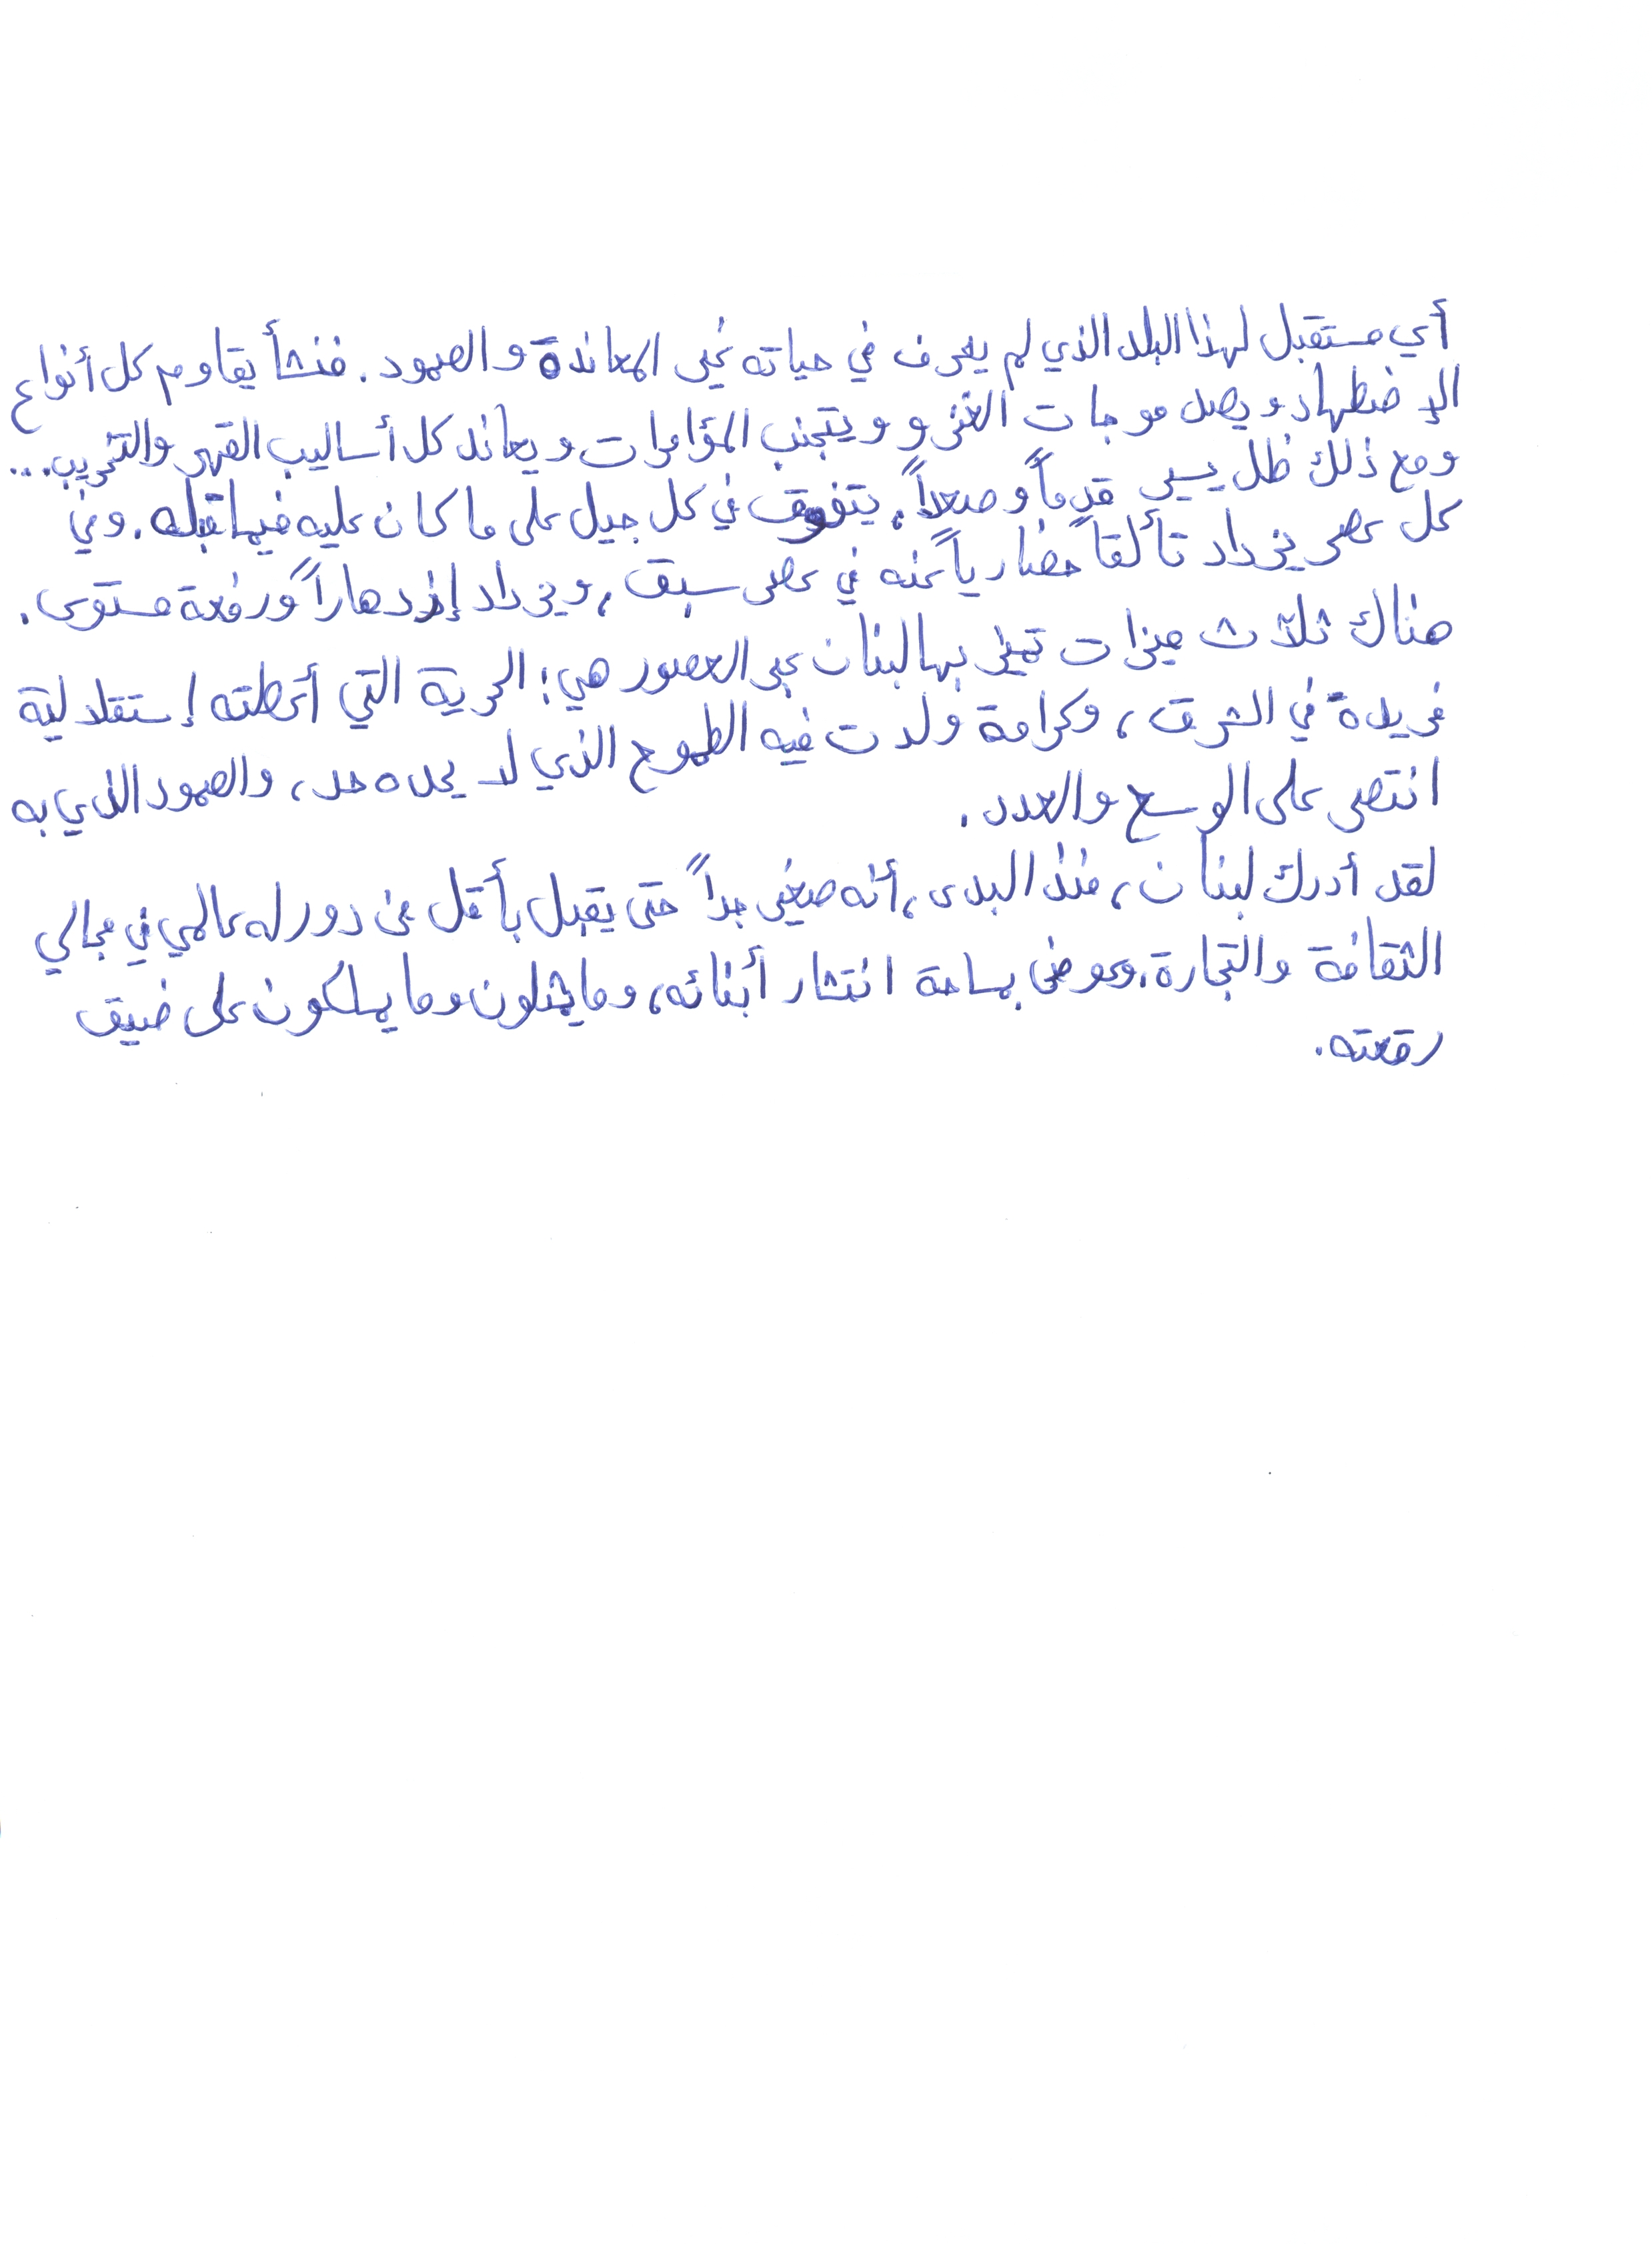 أي مستقبل لهذا البلد الذي لم يعرف في حياته غير المعاندة والصمود. فنشأ يقاوم كل أنواع
الإضطهاد ويصد موجات الغزو ويتجنب المؤامرات ويعاند كل أساليب القهر والتخريب...
ومع ذلك ظل يسير قدماً وصعداً. يتفوق في كل جيل على ما كان عليه فيما قبله. وفي
كل عصر يزداد تألقاً حضارياً عنه في عصر سبق، ويزداد إزدهاراً ورفعة مستوى.
هناك ثلاث ميزات تميز بها لبنان عبر العصور هي: الحرية التي أعطته إستقلالية
فريدة في الشرق، وكرامة ولدت فيه الطموح الذي لا يحده حد، والصمود الذي به
انتصر على الوسع والعدد.
لقد أدرك لبنان، منذ البدء، أنه صغير جداً حتى يقبل بأقل من دور له عالمي في مجالي
الثقافة والتجارة. وعوض بمساحة انتشار أبنائه، وما يمثلون وما يملكون على ضيق
رقعته.